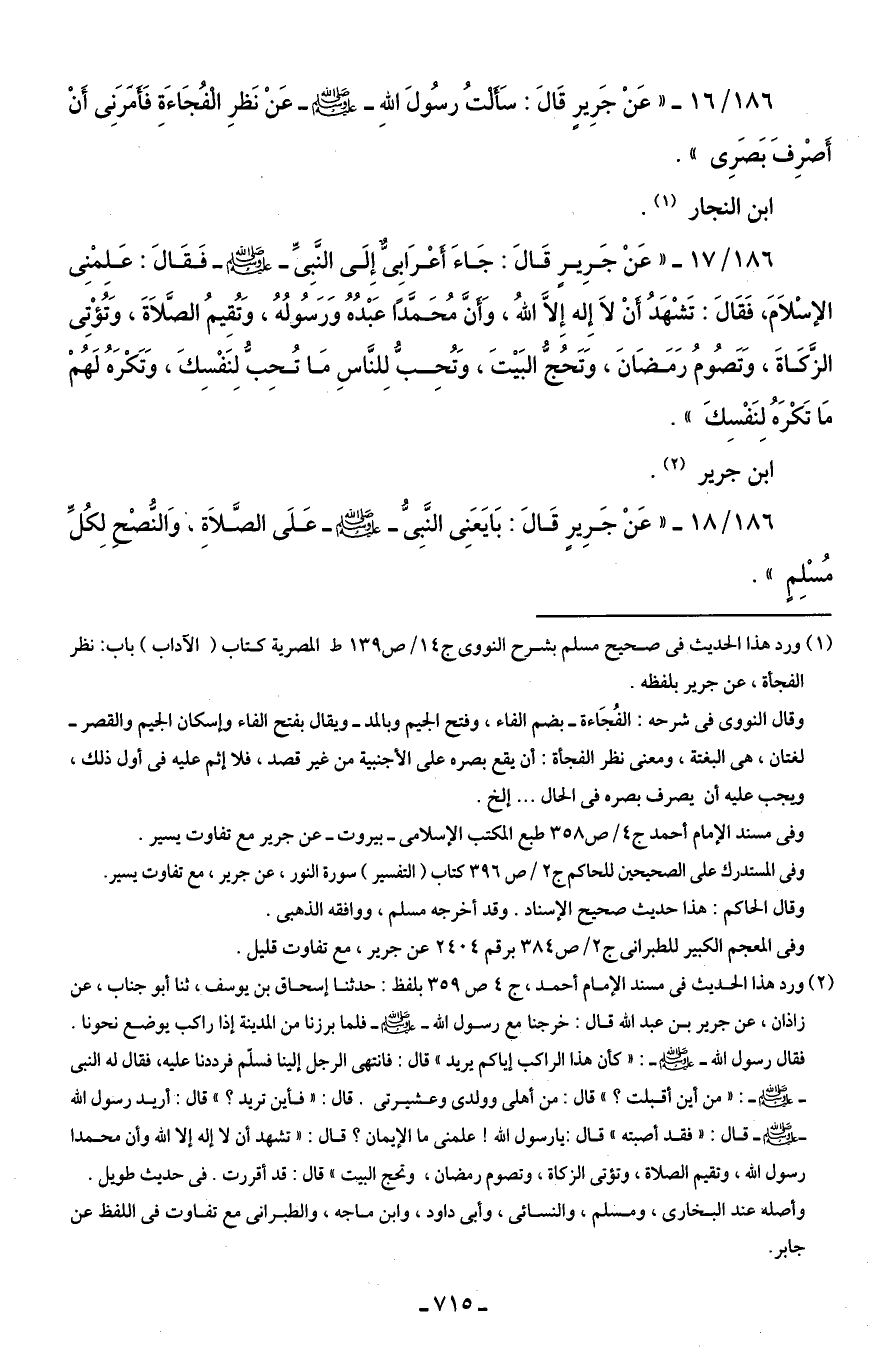 ١٦/١٨٦ ـ « عَنْ جَرِيرٍ قَالَ : سَأَلْتُ رسُولَ اللهِ ـ ﷺ ـ عَنْ نَظرِ الْفُجَاءَةِ فَأَمَرَنِى أَنْ
أَصْرِفَ بَصَرِى » .
ابن النجار (١) .
١٧/١٨٦ ـ « عَنْ جَرِيرٍ قَالَ : جَاءَ أَعْرَابِىٌّ إِلَى النَّبِىِّ ـ ﷺ ـ فَقَالَ : عَلِمْنِى
الإِسْلاَمَ، فَقَالَ : تَشْهَدُ أَنْ لاَ إِله إِلاَّ اللهُ ، وَأَنَّ مُحَمَّدًا عَبْدُهُ وَرَسُولُهُ ، وَتُقِيمُ الصَّلاَةَ ، وَتُؤْتِى
الزَّكَاةَ ، وَتَصُومُ رَمَضَانَ ، وَتَحُجُّ البَيْتَ ، وَتُحِبُّ لِلنَّاسِ مَا تُحِبُّ لِنَفْسِكَ ، وَتَكْرَهُ لَهُمْ
مَا تَكْرَهُ لِنَفْسِكَ » .
ابن جرير (٢) .
١٨/١٨٦ ـ « عَنْ جَرِيرٍ قَالَ : بَايَعَنِى النَّبِىُّ ـ ﷺ ـ عَلَى الصَّلاَةِ ، وَالنُّصْحِ لِكُلِّ
مُسْلِمٍ » .
(١) ورد هذا الحديث فى صحيح مسلم بشرح النووى ج١٤/ ص١٣٩ ط المصرية كتاب ( الآداب ) باب: نظر
الفجأة ، عن جرير بلفظه .
وقال النووى فى شرحه : الفُجَاءة ـ بضم الفاء ، وفتح الجيم وبالمد ـ ويقال بفتح الفاء وإسكان الجيم والقصر ـ
لغتان ، هى البغتة ، ومعنى نظر الفجأة : أن يقع بصره على الأجنبية من غير قصد ، فلا إثم عليه فى أول ذلك ،
ويجب عليه أن يصرف بصره فى الحال ... إلخ .
وفى مسند الإمام أحمد ج٤/ ص٣٥٨ طبع المكتب الإسلامى ـ بيروت ـ عن جرير مع تفاوت يسير .
وفى المستدرك على الصحيحين للحاكم ج٢/ ص ٣٩٦ كتاب ( التفسير ) سورة النور ، عن جرير ، مع تفاوت يسير.
وقال الحاكم : هذا حديث صحيح الإسناد . وقد أخرجه مسلم ، ووافقه الذهبى .
وفى المعجم الكبير للطبرانى ج٢/ ص٣٨٤ برقم ٢٤٠٤ عن جرير ، مع تفاوت قليل .
(٢) ورد هذا الحديث فى مسند الإمام أحمد ، ج ٤ ص ٣٥٩ بلفظ : حدثنا إسحاق بن يوسف ، ثنا أبو جناب ، عن
زاذان ، عن جرير بن عبد الله قال : خرجنا مع رسول الله ـ ﷺ ـ فلما برزنا من المدينة إذا راكب يوضع نحونا .
فقال رسول الله ـ ﷺ ـ : « كأن هذا الراكب إياكم يريد » قال : فانتهى الرجل إلينا فسلّم فرددنا عليه، فقال له النبى
ـ ﷺ ـ : « من أين أقبلت ؟ » قال : من أهلى وولدى وعشيرتى . قال : « فأين تريد ؟ » قال : أريد رسول الله
ـ ﷺ ـ قال : « فقد أصبته » قال :يارسول الله ! علمنى ما الإيمان ؟ قال : « تشهد أن لا إله إلا الله وأن محمدا
رسول الله ، وتقيم الصلاة ، وتؤتى الزكاة ، وتصوم رمضان ، وتحج البيت » قال : قد أقررت . فى حديث طويل .
وأصله عند البخارى ، ومسلم ، والنسائى ، وأبى داود ، وابن ماجه ، والطبرانى مع تفاوت فى اللفظ عن
جابر.
ـ ٧١٥ ـ